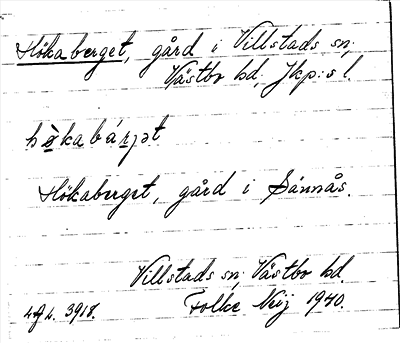 Hökaberget, gård i Villstads sn,
Västbo hd, Jkp:s l.
Hökaberget, gård i Sånnås.
Villstads sn, Västbo hd.
Folke Nyj 1940.
3918.